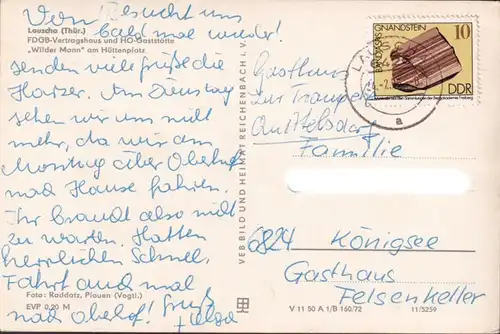 Von Besucht uns
bald mal wieder!
Lauscha (Thür.)
FDGB-Vertragshaus und HO-Gaststätte
„Wilder Mann" am Hüttenplatz
senden viele Grüße die
Harzer. Am Dienstag
sehen wir uns nicht
mehr, da wir am
Montag über Oberhof
nach Hause fahren.
Ihr braucht also nicht
zu warten. Hatten
herrlichen Schnee.
Fahrt auch mal
nach Oberhof! Gruß
Foto: Raddatz, Plauen (Vogtl.)
EVP 0,20 M
VEB BILD UND HEIMAT REICHENBACH i. V.
GNANDSTEIN
10
DDR
a
Gasthaus
zur
Familie
6824 Königsee
Gasthaus
Felsenkeller
V 11 50 A 1/B 160/72
11/5259